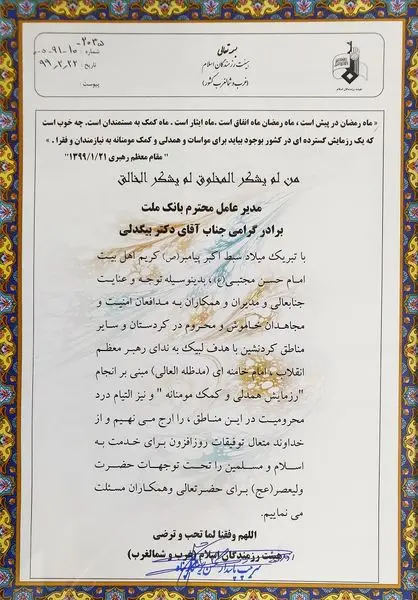 بسمه تعالی
هیئت رزمندگان اسلام
(غرب و شمالغرب کشور)
شماره:
تاریخ: ۹۹,۲,۲۲
پیوست:
هیئت رزمندگان اسلام
« ماه رمضان در پیش است ، ماه رمضان ماه انفاق است .ماه ایثار است . ماه کمک به مستمندان است. چه خوب است
که یک رزمایش گسترده ای در کشور بوجود بیاید برای مواسات و همدلی و کمک مومنانه به نیازمندان و فقرا . »
" مقام معظم رهبری ۱۳۹۹/۱/۲۱"
من لم یشکر المخلوق لم یشکر الخالق
مدیر عامل محترم بانک ملت
برادر گرامی جناب آقای دکتر بیگدلی
با تبریک میلاد سبط اکبر پیامبر(ص) کریم اهل بیت
امام حسن مجتبی(ع)، بدینوسیله توجه و عنایت
جنابعالی و مدیران و همکاران به مدافعان امنیت و
مجاهدان خاموش و محروم در کردستان و سایر
مناطق کردنشین با هدف لبیک به ندای رهبر معظم
انقلاب ، امام خامنه ای (مدظله العالی) مبنی بر انجام
"رزمایش همدلی و کمک مومنانه " و نیز التیام درد
محرومیت در این مناطق ، را ارج می نهیم و از
خداوند متعال توفیقات روزافزون برای خدمت به
اسلام و مسلمین را تحت توجهات حضرت
ولیعصر(عج) برای حضرتعالی وهمکاران مسئلت
می نماییم.
اللهم وفقنا لما تحب و ترضی
هیئت رزمندگان اسلام (غرب و شمالغرب)